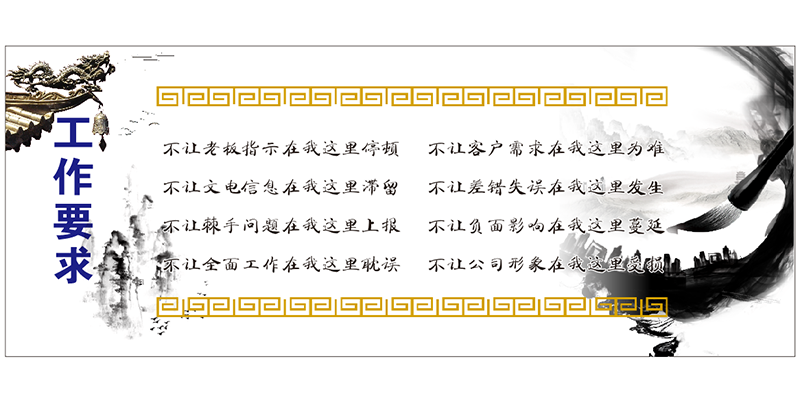 工作要求
不让老板指示在我这里停顿
不让文电信息在我这里滞留
不让棘手问题在我这里上报
不让全面工作在我这里耽误
不让客户需求在我这里为难
不让差错失误在我这里发生
不让负面影响在我这里蔓延
不让公司形象在我这里受损